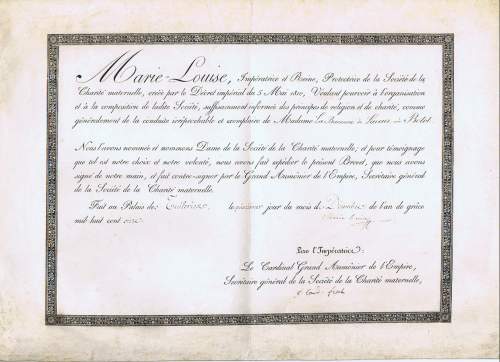 Marie-Louise, Impératrice et Reine, Protectrice de la Société de la
Charité maternelle, créée par le Décret impérial du 5 Mai 1810, Voulant pourvoir à l'organisation
et à la composition de ladite Société, suffisamment informée des principes de religion et de charité, comme
généralement de la conduite irréprochable et exemplaire de Madame La Baronne de
Nous l'avons nommée et nommons Dame de la Société de la Charité maternelle; et pour témoignage
que tel est notre choix et notre volonté, nous avons fait expédier le présent Brevet, que nous avons
signé de notre main, et fait contre-signer par le Grand Aumônier de l'Empire, Secrétaire général
de la Société de la Charité maternelle.
Fait au Palais des Tuileries, le premier jour du mois d de l'an de grâce
mil huit cent onze
Par l'Impératrice:
Le Cardinal Grand Aumônier de l'Empire,
Secrétaire général de la Société de la Charité maternelle,